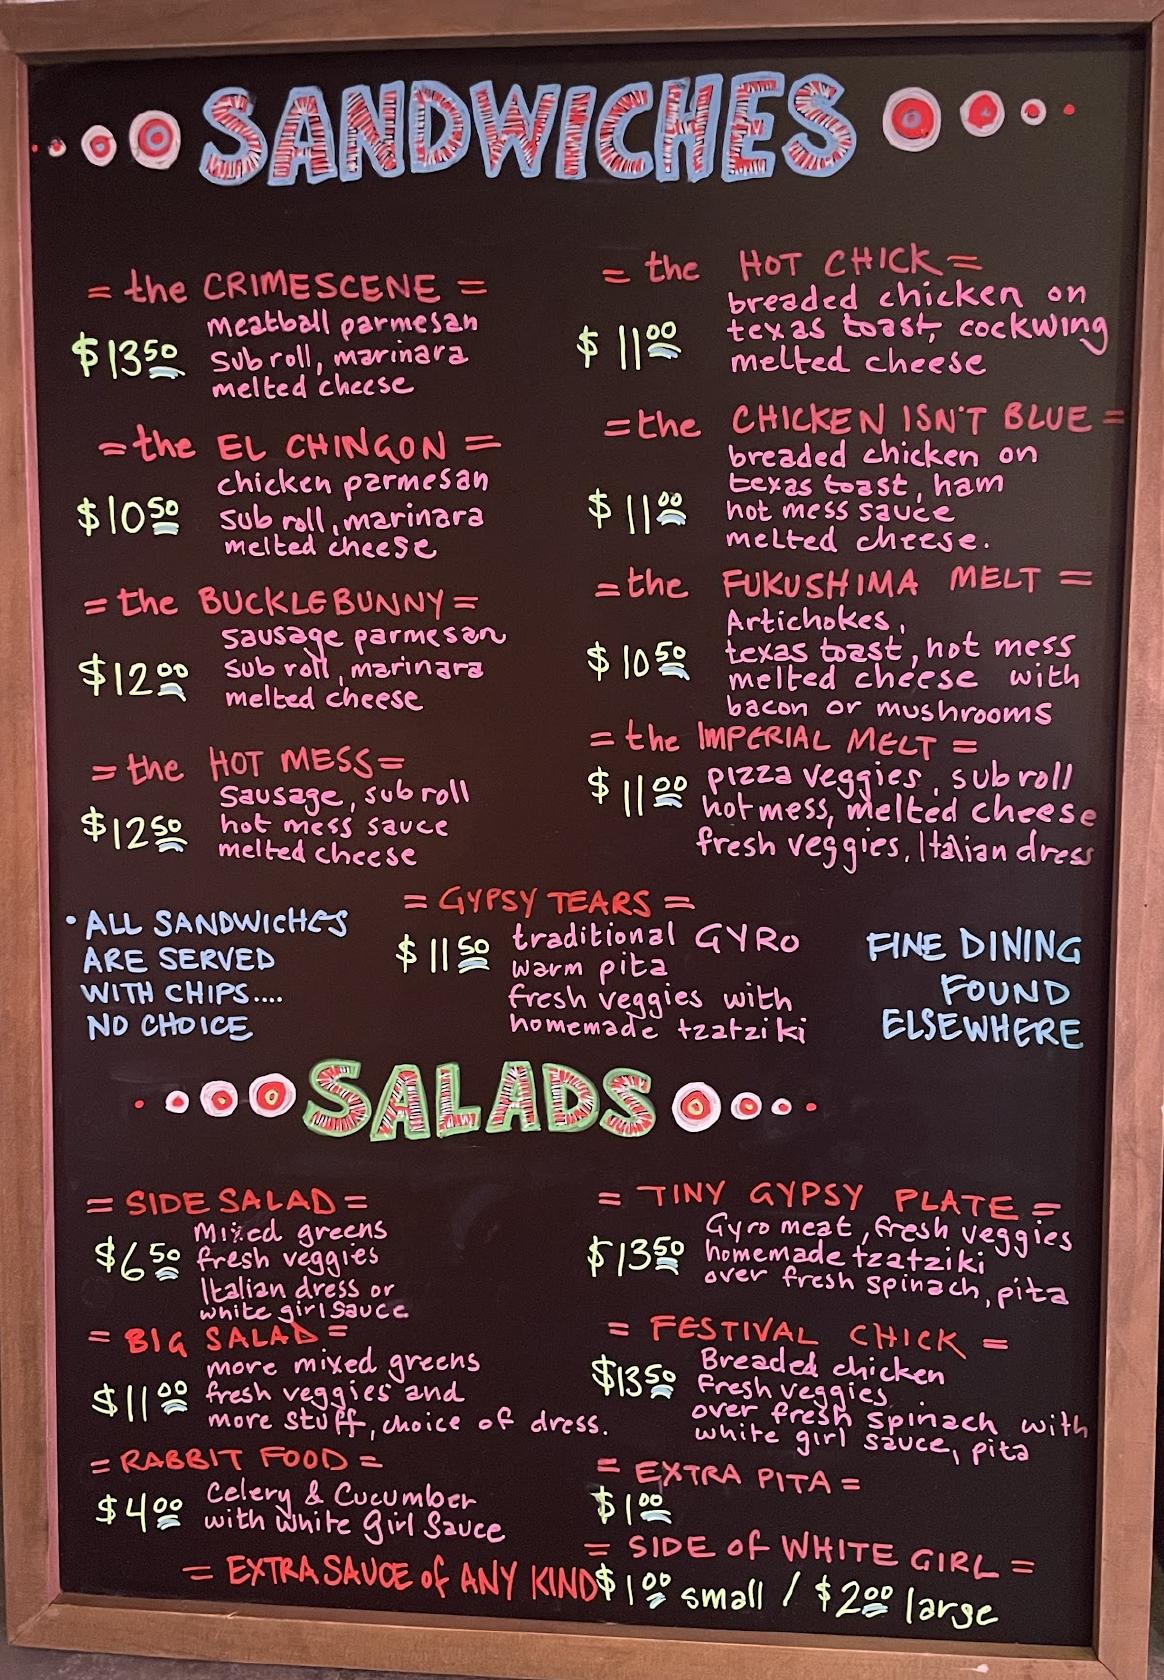 SANDWICHES
= the CRIMESCENE =
$13.50
meatball parmesan
Sub roll, marinara
melted cheese
= the EL CHINGON =
$10.50
chicken parmesan
sub roll, marinara
melted cheese
= the BUCKLEBUNNY =
$12.00
sausage parmesan
sub roll, marinara
melted cheese
= the HOT MESS =
$12.50
Sausage, sub roll
hot mess sauce
melted cheese
= the HOT CHICK =
$11.00
breaded chicken on
texas toast, cockwing
melted cheese
= the CHICKEN ISN'T BLUE =
$11.00
breaded chicken on
texas toast, ham
hot mess sauce
melted cheese.
= the FUKUSHIMA MELT =
$10.50
Artichokes,
texas toast, hot mess
melted cheese with
bacon or mushrooms
= the IMPERIAL MELT =
$11.00
pizza veggies, sub roll
hot mess, melted cheese
fresh veggies, Italian dress
• ALL SANDWICHES
ARE SERVED
WITH CHIPS....
NO CHOICE
= GYPSY TEARS =
$11.50
traditional GYRO
warm pita
fresh veggies with
homemade tzatziki
FINE DINING
FOUND
ELSEWHERE
SALADS
= SIDE SALAD =
$6.50
Mixed greens
fresh veggies
Italian dress or
white girl sauce
= BIG SALAD =
$11.00
more mixed greens
fresh veggies and
more stuff, choice of dress.
= RABBIT FOOD =
$4.00
Celery & Cucumber
with White Girl Sauce
= TINY GYPSY PLATE =
$13.50
Gyro meat, fresh veggies
homemade tzatziki
over fresh spinach, pita
= FESTIVAL CHICK =
$13.50
Breaded chicken
Fresh veggies
over fresh spinach with
white girl sauce, pita
= EXTRA PITA =
$1.00
= SIDE of WHITE GIRL =
= EXTRA SAUCE of ANY KIND $1.00 small / $2.00 large